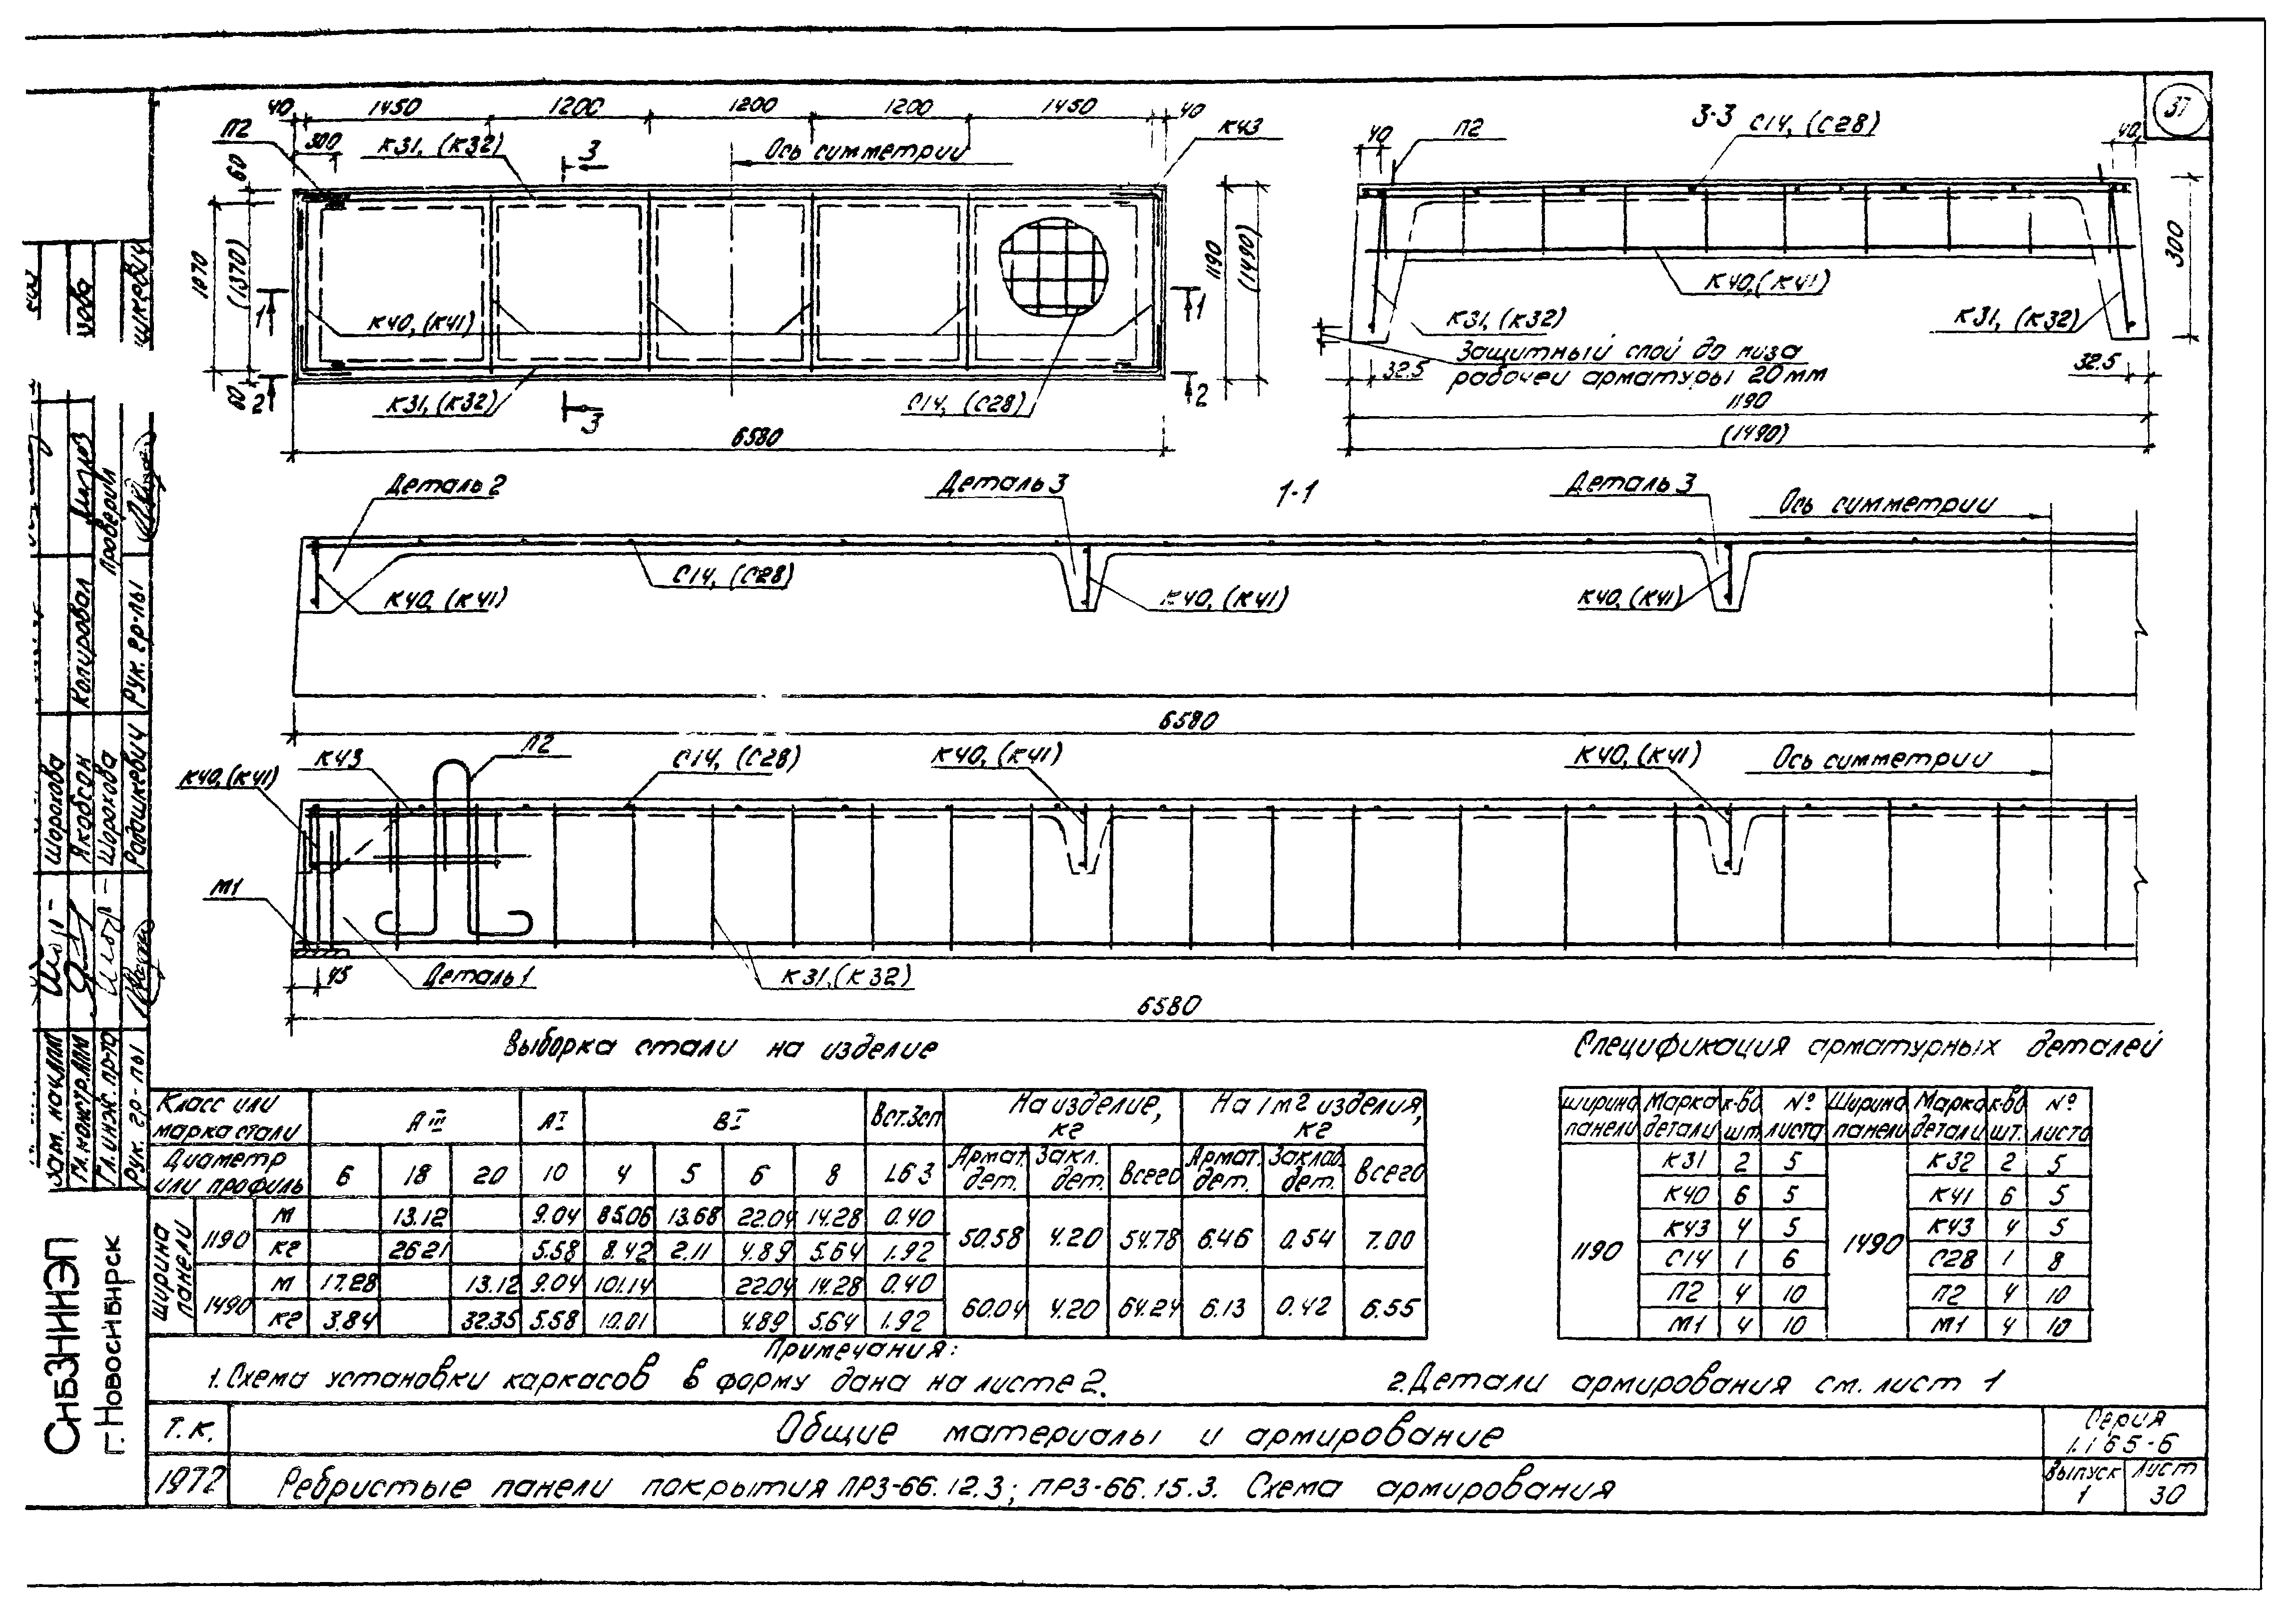 37
40 1450 1200 1200 1200 1450 40
П2
300
К31, (К32)
3
Ось симметрии
К43
60
1070
(1370)
60
1190
(1490)
1
1
К40, (К41)
2
2
К31, (К32)
3
С14, (С28)
6580
3-3
С14, (С28)
40
П2
40
300
К40, (К41)
К31, (К32)
К31, (К32)
Защитный слой до низа
рабочей арматуры 20мм
32.5
32.5
1190
(1490)
Деталь 2
Деталь 3
1-1
Деталь 3
Ось симметрии
К40, (К41)
С14, (С28)
К40, (К41)
К40, (К41)
6580
К40, (К41)
К43
П2
С14, (С28)
К40, (К41)
К40, (К41)
Ось симметрии
М1
45
Деталь 1
К31, (К32)
6580
Выборка стали на изделие
Класс или марка стали АIII АI ВI Вст.3сп На изделие, кг На 1м2 изделия, кг
Диаметр или профиль 6 18 20 10 4 5 6 8 L63 Армат. дет. Закл. дет. Всего Армат. дет. Заклад. дет. Всего
Ширина панели
1190 м 13.12 9.04 85.06 13.68 22.04 14.28 0.40
кг 26.21 5.58 8.42 2.11 4.89 5.64 1.92 50.58 4.20 54.78 6.46 0.54 7.00
1490 м 17.28 13.12 9.04 101.14 22.04 14.28 0.40
кг 3.84 32.35 5.58 10.01 4.89 5.64 1.92 60.04 4.20 64.24 6.13 0.42 6.55
Спецификация арматурных деталей
Ширина панели Марка детали к-во шт. № листа Ширина панели Марка детали к-во шт. № листа
1190 К31 2 5 1490 К32 2 5
К40 6 5 К41 6 5
К43 4 5 К43 4 5
С14 1 6 С28 1 8
П2 4 10 П2 4 10
М1 4 10 М1 4 10
Примечания:
1. Схема установки каркасов в форму дана на листе 2.
2. Детали армирования см. лист 1
Т.К.
1972
Общие материалы и армирование
Ребристые панели покрытия ПР3-66.12.3; ПР3-66.15.3. Схема армирования
Серия
1.165-6
Выпуск
1
Лист
30
СибЗНИИЭП
г. Новосибирск
Зам. нач.АПМ
Гл.констр.АПМ
Гл.инж. пр-та
Рук. гр-пы
Шорохова
Якобсон
Шорохова
Радишкевич
Копировал
Рук. гр-пы
Проверил